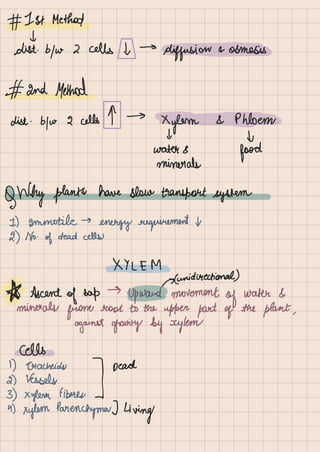 # 1st Method
↓
dist. b/w 2 cells ↓ → diffusion & osmosis
# 2nd Method
dist. b/w 2 cells ↑ → Xylem & Phloem
↓ ↓
water & food
minerals
Q) Why plants have slow transport system
1) Immotile → energy requirement ↓
2) No. of dead cells
XYLEM
(unidirectional)
Ascent of sap → Upward movement of water &
minerals from root to the upper part of the plant,
against gravity by xylem
Cells
1) Tracheids
2) Vessels
3) Xylem fibres ] Dead
4) Xylem Parenchyma ] Living